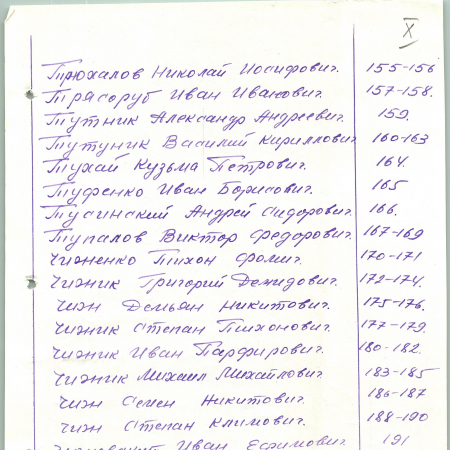 X
Трюхалов Николай Иосифович. 155-156
Трясоруб Иван Иванович. 157-158.
Тутник Александр Андреевич. 159.
Тутуник Василий Кириллович 160-163
Тухай Кузьма Петрович. 164.
Туфенко Иван Борисович. 165
Тусинский Андрей Сидорович. 166.
Тупалов Виктор Федорович. 167-169
Чижненко Тихон Фомич. 170-171
Чижник Григорий Демидович. 172-174.
Чиж Демьян Никитович. 175-176.
Чижник Степан Тихонович. 177-179.
Чижник Иван Парфирович. 180-182.
Чижник Михаил Михайлович 183-185
Чиж Семен Никитович. 186-187
Чиж Степан Климович. 188-190
Иван Ефимович 191